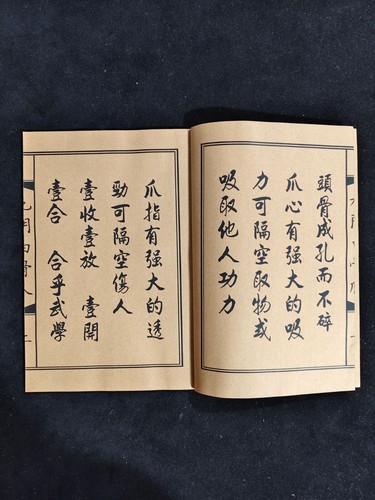 頭骨成孔而不碎
爪心有强大的吸
力可隔空取物或
吸取他人功力
爪指有强大的透
勁可隔空傷人
壹收壹放 壹開
壹合 合乎武學